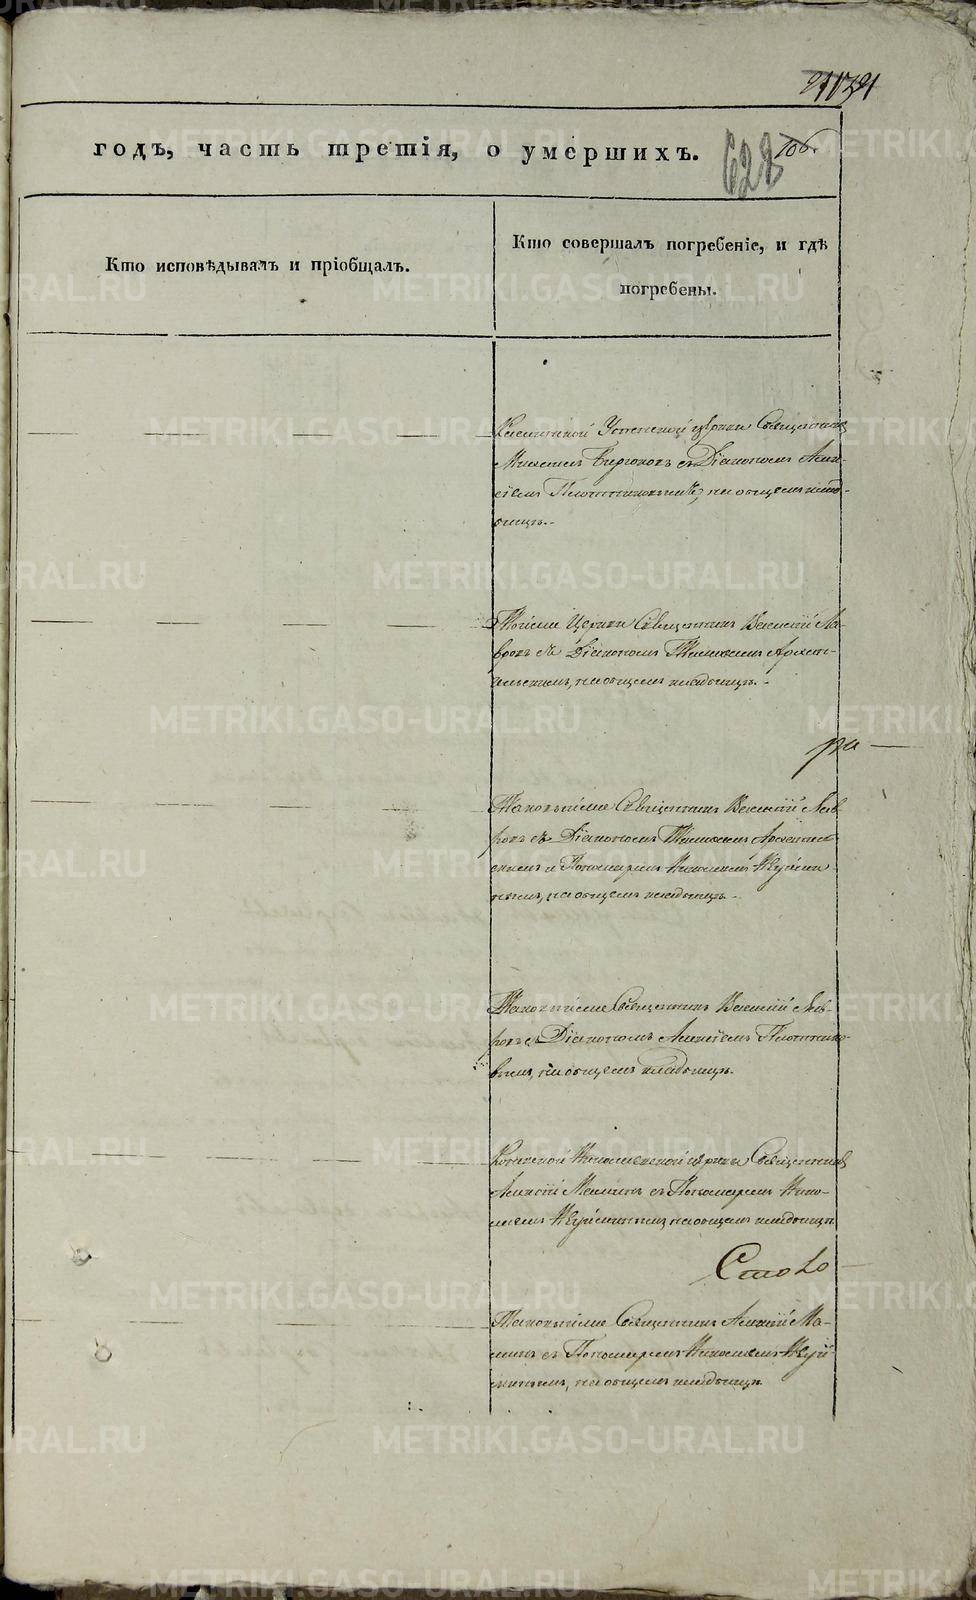 годъ, часть третія, о умершихъ.
628
Кто исповѣдывалъ и пріобщалъ.
Кто совершалъ погребеніе, и гдѣ
погребены.
Успенской церкви Священникъ
съ Діакономъ Алек-
сіемъ Плотниковымъ, на общемъ клад-
бищѣ.
Тойже Церкви Священникъ Василій Ла-
вровъ съ Діакономъ Архан-
гельскимъ, на общемъ кладбищѣ.
Таковыйже Священникъ Василій Лав-
ровъ съ Діакономъ Архангель-
скимъ и Пономаремъ Николаемъ
на общемъ кладбищѣ.
Таковыйже Священникъ Василій Лав-
ровъ съ Діакономъ Алексіемъ Плотнико-
вымъ, на общемъ кладбищѣ.
Николаевской церкви Священникъ
Алексій Маминъ съ Пономаремъ Нико-
лаемъ на общемъ кладбищѣ
Таковыйже Священникъ Алексій Ма-
минъ съ Пономаремъ Николаемъ
на общемъ кладбищѣ
METRIKI.GASO-URAL.RU